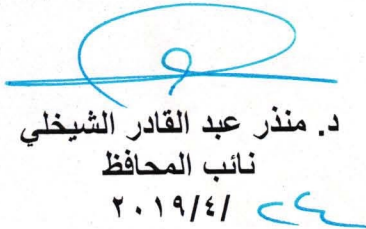 د. منذر عبد القادر الشيخلي
نائب المحافظ
٢٠١٩/٤/